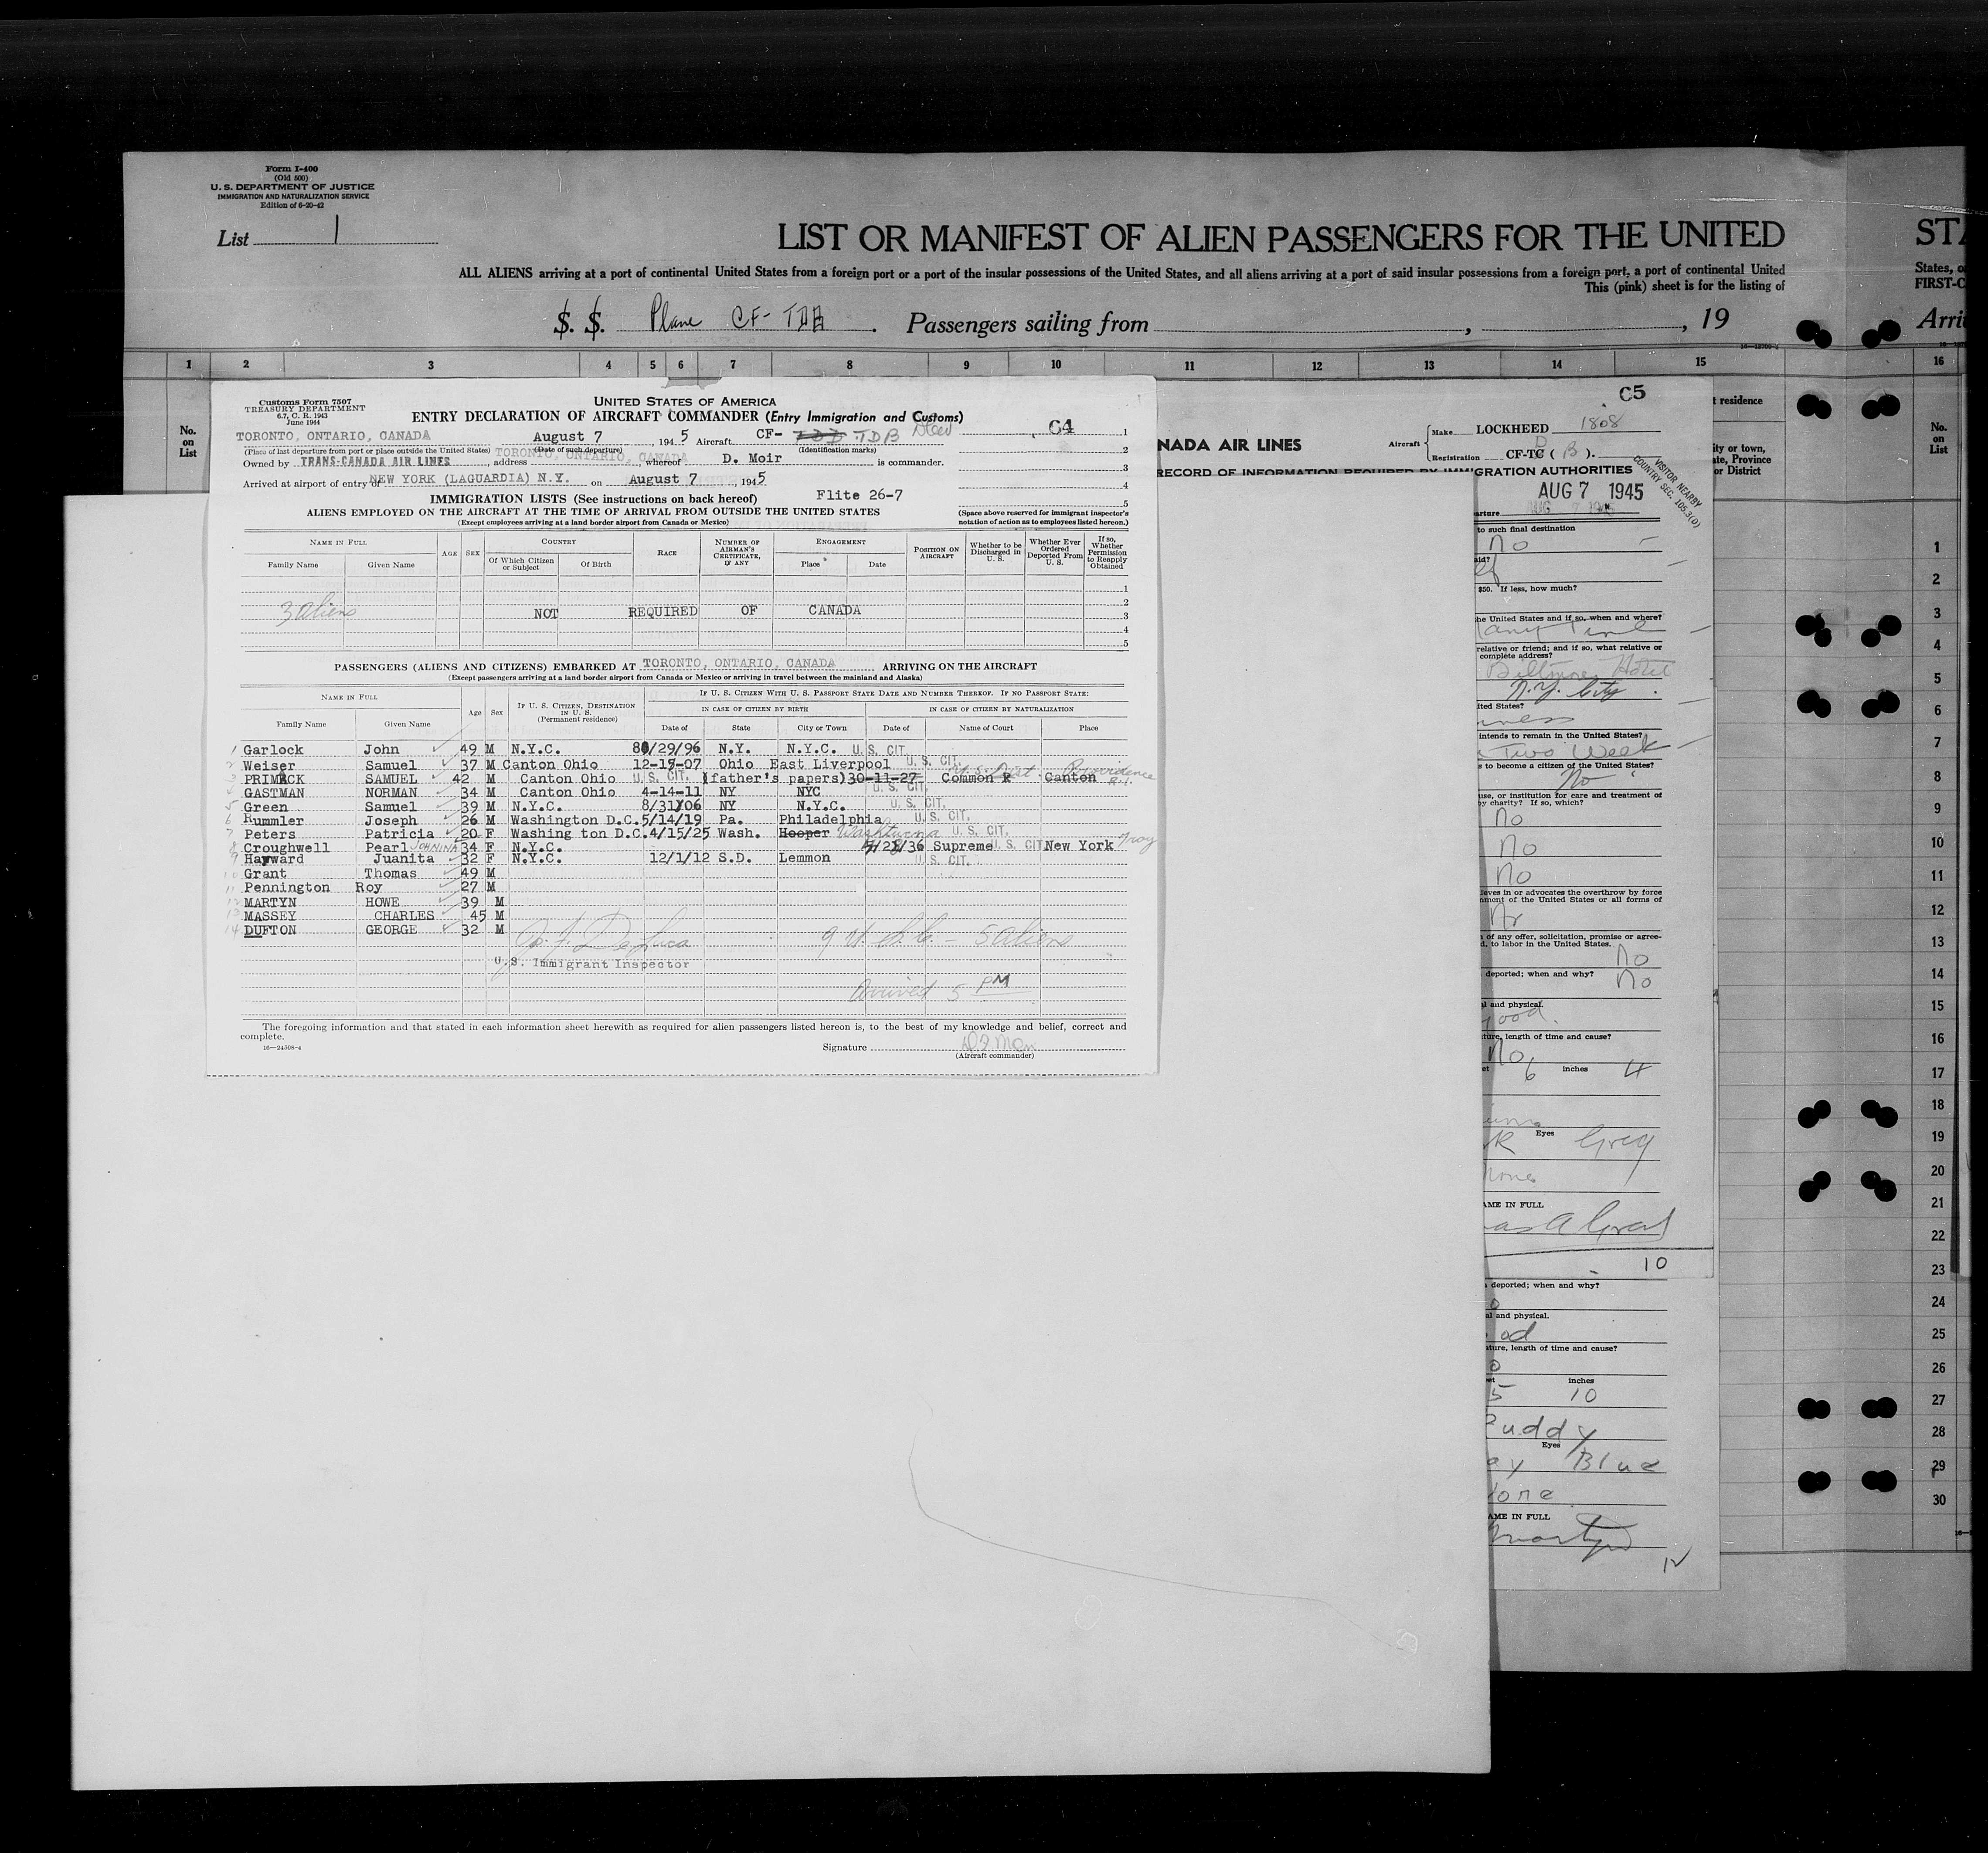 Form I-400
(Old 500)
U. S. DEPARTMENT OF JUSTICE
IMMIGRATION AND NATURALIZATION SERVICE
Edition of 6-20-42
List 1
LIST OR MANIFEST OF ALIEN PASSENGERS FOR THE UNITED
ALL ALIENS arriving at a port of continental United States from a foreign port or a port of the insular possessions of the United States, and all aliens arriving at a port of said insular possessions from a foreign port, a port of continental United
This (pink) sheet is for the listing of
S. S. Plane CF-TDB. Passengers sailing from , , 19
1 2 3 4 5 6 7 8 9 10 11 12 13 14 15
No. on List
Customs Form 7507
TREASURY DEPARTMENT
6.7, C. R. 1943
June 1944
UNITED STATES OF AMERICA
ENTRY DECLARATION OF AIRCRAFT COMMANDER (Entry Immigration and Customs)
C4
TORONTO, ONTARIO, CANADA August 7, 1945 Aircraft CF- TDB
(Place of last departure from port or place outside the United States) (Date of such departure) (Identification marks)
Owned by TRANS-CANADA AIR LINES, address TORONTO, ONTARIO, CANADA, whereof D. Moir is commander.
Arrived at airport of entry of NEW YORK (LAGUARDIA) N.Y. on August 7, 1945
IMMIGRATION LISTS (See instructions on back hereof) Flite 26-7
ALIENS EMPLOYED ON THE AIRCRAFT AT THE TIME OF ARRIVAL FROM OUTSIDE THE UNITED STATES
(Except employees arriving at a land border airport from Canada or Mexico)
(Space above reserved for immigrant inspector's notation of action as to employees listed hereon.)
NAME IN FULL AGE SEX COUNTRY RACE NUMBER OF AIRMAN'S CERTIFICATE, IF ANY ENGAGEMENT POSITION ON AIRCRAFT Whether to be Discharged in U. S. Whether Ever Ordered Deported From U. S. If so, Whether Permission to Reapply Obtained
Family Name Given Name Of Which Citizen or Subject Of Birth Place Date
3 aliens NOT REQUIRED OF CANADA
PASSENGERS (ALIENS AND CITIZENS) EMBARKED AT TORONTO, ONTARIO, CANADA ARRIVING ON THE AIRCRAFT
(Except passengers arriving at a land border airport from Canada or Mexico or arriving in travel between the mainland and Alaska)
NAME IN FULL Age Sex IF U. S. CITIZEN, DESTINATION IN U. S. (Permanent residence) IF U. S. CITIZEN WITH U. S. PASSPORT STATE DATE AND NUMBER THEREOF. IF NO PASSPORT STATE:
IN CASE OF CITIZEN BY BIRTH IN CASE OF CITIZEN BY NATURALIZATION
Family Name Given Name Date of State City or Town Date of Name of Court Place
1 Garlock John 49 M N.Y.C. 8/29/96 N.Y. N.Y.C. U. S. CIT.
2 Weiser Samuel 37 M Canton Ohio 12-15-07 Ohio East Liverpool U. S. CIT.
3 PRIMACK SAMUEL 42 M Canton Ohio U. S. CIT. (father's papers) 30-11-27 Common P Canton Providence R.I.
GASTMAN NORMAN 34 M Canton Ohio 4-14-11 NY NYC U. S. CIT.
5 Green Samuel 39 M N.Y.C. 8/31/06 NY N.Y.C. U. S. CIT.
6 Rummler Joseph 26 M Washington D.C. 5/14/19 Pa. Philadelphia U. S. CIT.
7 Peters Patricia 20 F Washing ton D.C. 4/15/25 Wash. Hooper U. S. CIT.
8 Croughwell Pearl JOHNINA 34 F N.Y.C. /36 Supreme U. S. CIT New York Troy
9 Hayward Juanita 32 F N.Y.C. 12/1/12 S.D. Lemmon U. S. CIT.
10 Grant Thomas 49 M
11 Pennington Roy 27 M
12 MARTYN HOWE 39 M
13 MASSEY CHARLES 45 M
14 DUFTON GEORGE 32 M
9 U. S. C. - 5 aliens
U.S. Immigrant Inspector
Arrived 5 PM
The foregoing information and that stated in each information sheet herewith as required for alien passengers listed hereon is, to the best of my knowledge and belief, correct and complete.
16—24598-4
Signature
(Aircraft commander)
C5
NADA AIR LINES
Aircraft Make LOCKHEED 1808
Registration CF-TC ( B ).
RECORD OF INFORMATION REQUIRED BY IMMIGRATION AUTHORITIES
AUG 7 1945
VISITOR NEARBY
COUNTRY SEC. 105.3(0)
to such final destination
no
$50. If less, how much?
he United States and if so, when and where?
any Time
relative or friend; and if so, what relative or
complete address?
Biltmore Hotel
N.Y. City
ited States?
iness
intends to remain in the United States?
Two Week
s to become a citizen of the United States?
No
use, or institution for care and treatment of
by charity? If so, which?
no
no
no
ieves in or advocates the overthrow by force
nment of the United States or all forms of
of any offer, solicitation, promise or agree-
d, to labor in the United States.
no
deported; when and why?
no
l and physical.
good.
ture, length of time and cause?
no
6 inches 4
Eyes Grey
none
AME IN FULL
as A Grant
10
deported; when and why?
al and physical.
od
ature, length of time and cause?
5 inches 10
Ruddy
Eyes
ay Blue
None
AME IN FULL
Martyn
12
t residence
ity or town,
ate, Province
or District
STA
States, o
FIRST-C
Arri
16
No. on List
1
2
3
4
5
6
7
8
9
10
11
12
13
14
15
16
17
18
19
20
21
22
23
24
25
26
27
28
29
30